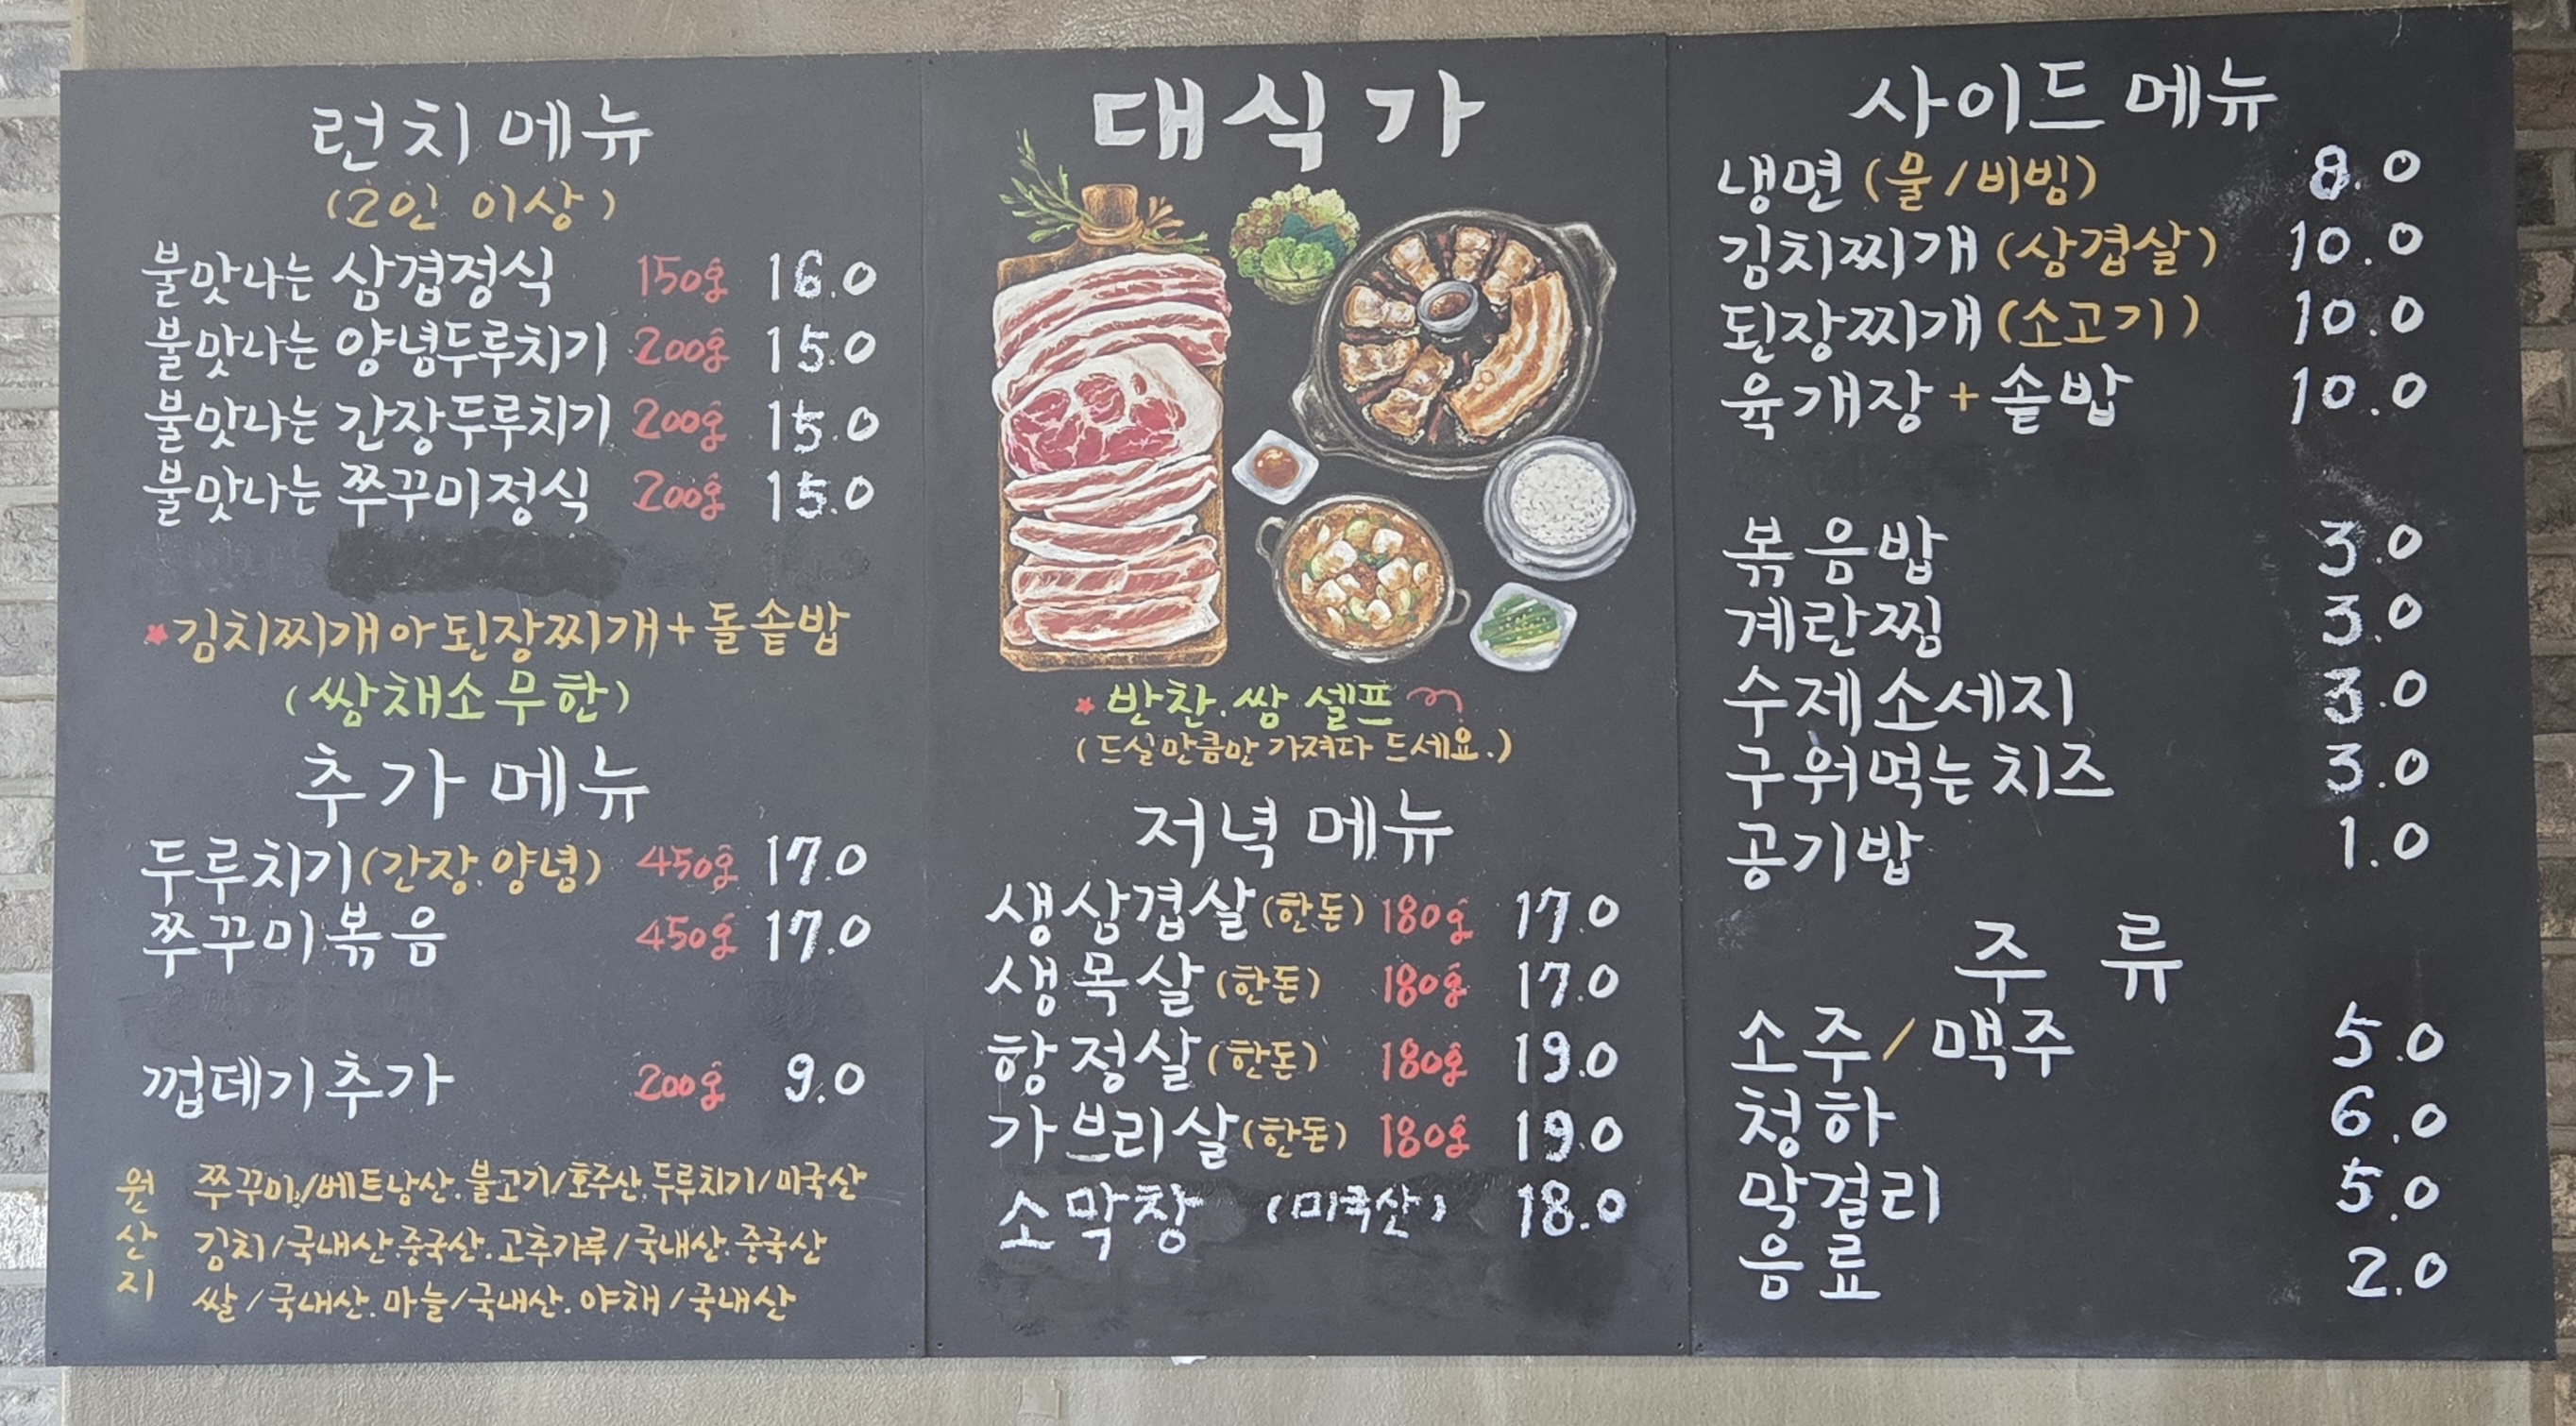 런치 메뉴
(2인 이상)
불맛나는 삼겹정식 150g 16.0
불맛나는 양념두루치기 200g 15.0
불맛나는 간장두루치기 200g 15.0
불맛나는 쭈꾸미정식 200g 15.0
*김치찌개 아 된장찌개+돌솥밥
(쌈채소 무한)
추가 메뉴
두루치기(간장.양념) 450g 17.0
쭈꾸미볶음 450g 17.0
껍데기추가 200g 9.0
원산지
쭈꾸미/베트남산.불고기/호주산.두루치기/미국산
김치/국내산.중국산.고추가루/국내산.중국산
쌀/국내산.마늘/국내산.야채/국내산
대식가
*반찬.쌈 셀프
(드실만큼만 가져다 드세요.)
저녁 메뉴
생삼겹살(한돈) 180g 17.0
생목살(한돈) 180g 17.0
항정살(한돈) 180g 19.0
가브리살(한돈) 180g 19.0
소막창 (미국산) 18.0
사이드 메뉴
냉면(물/비빙) 8.0
김치찌개(삼겹살) 10.0
된장찌개(소고기) 10.0
육개장+솥밥 10.0
볶음밥 3.0
계란찜 3.0
수제소세지 3.0
구워먹는치즈 3.0
공기밥 1.0
주류
소주/맥주 5.0
청하 6.0
막걸리 5.0
음료 2.0